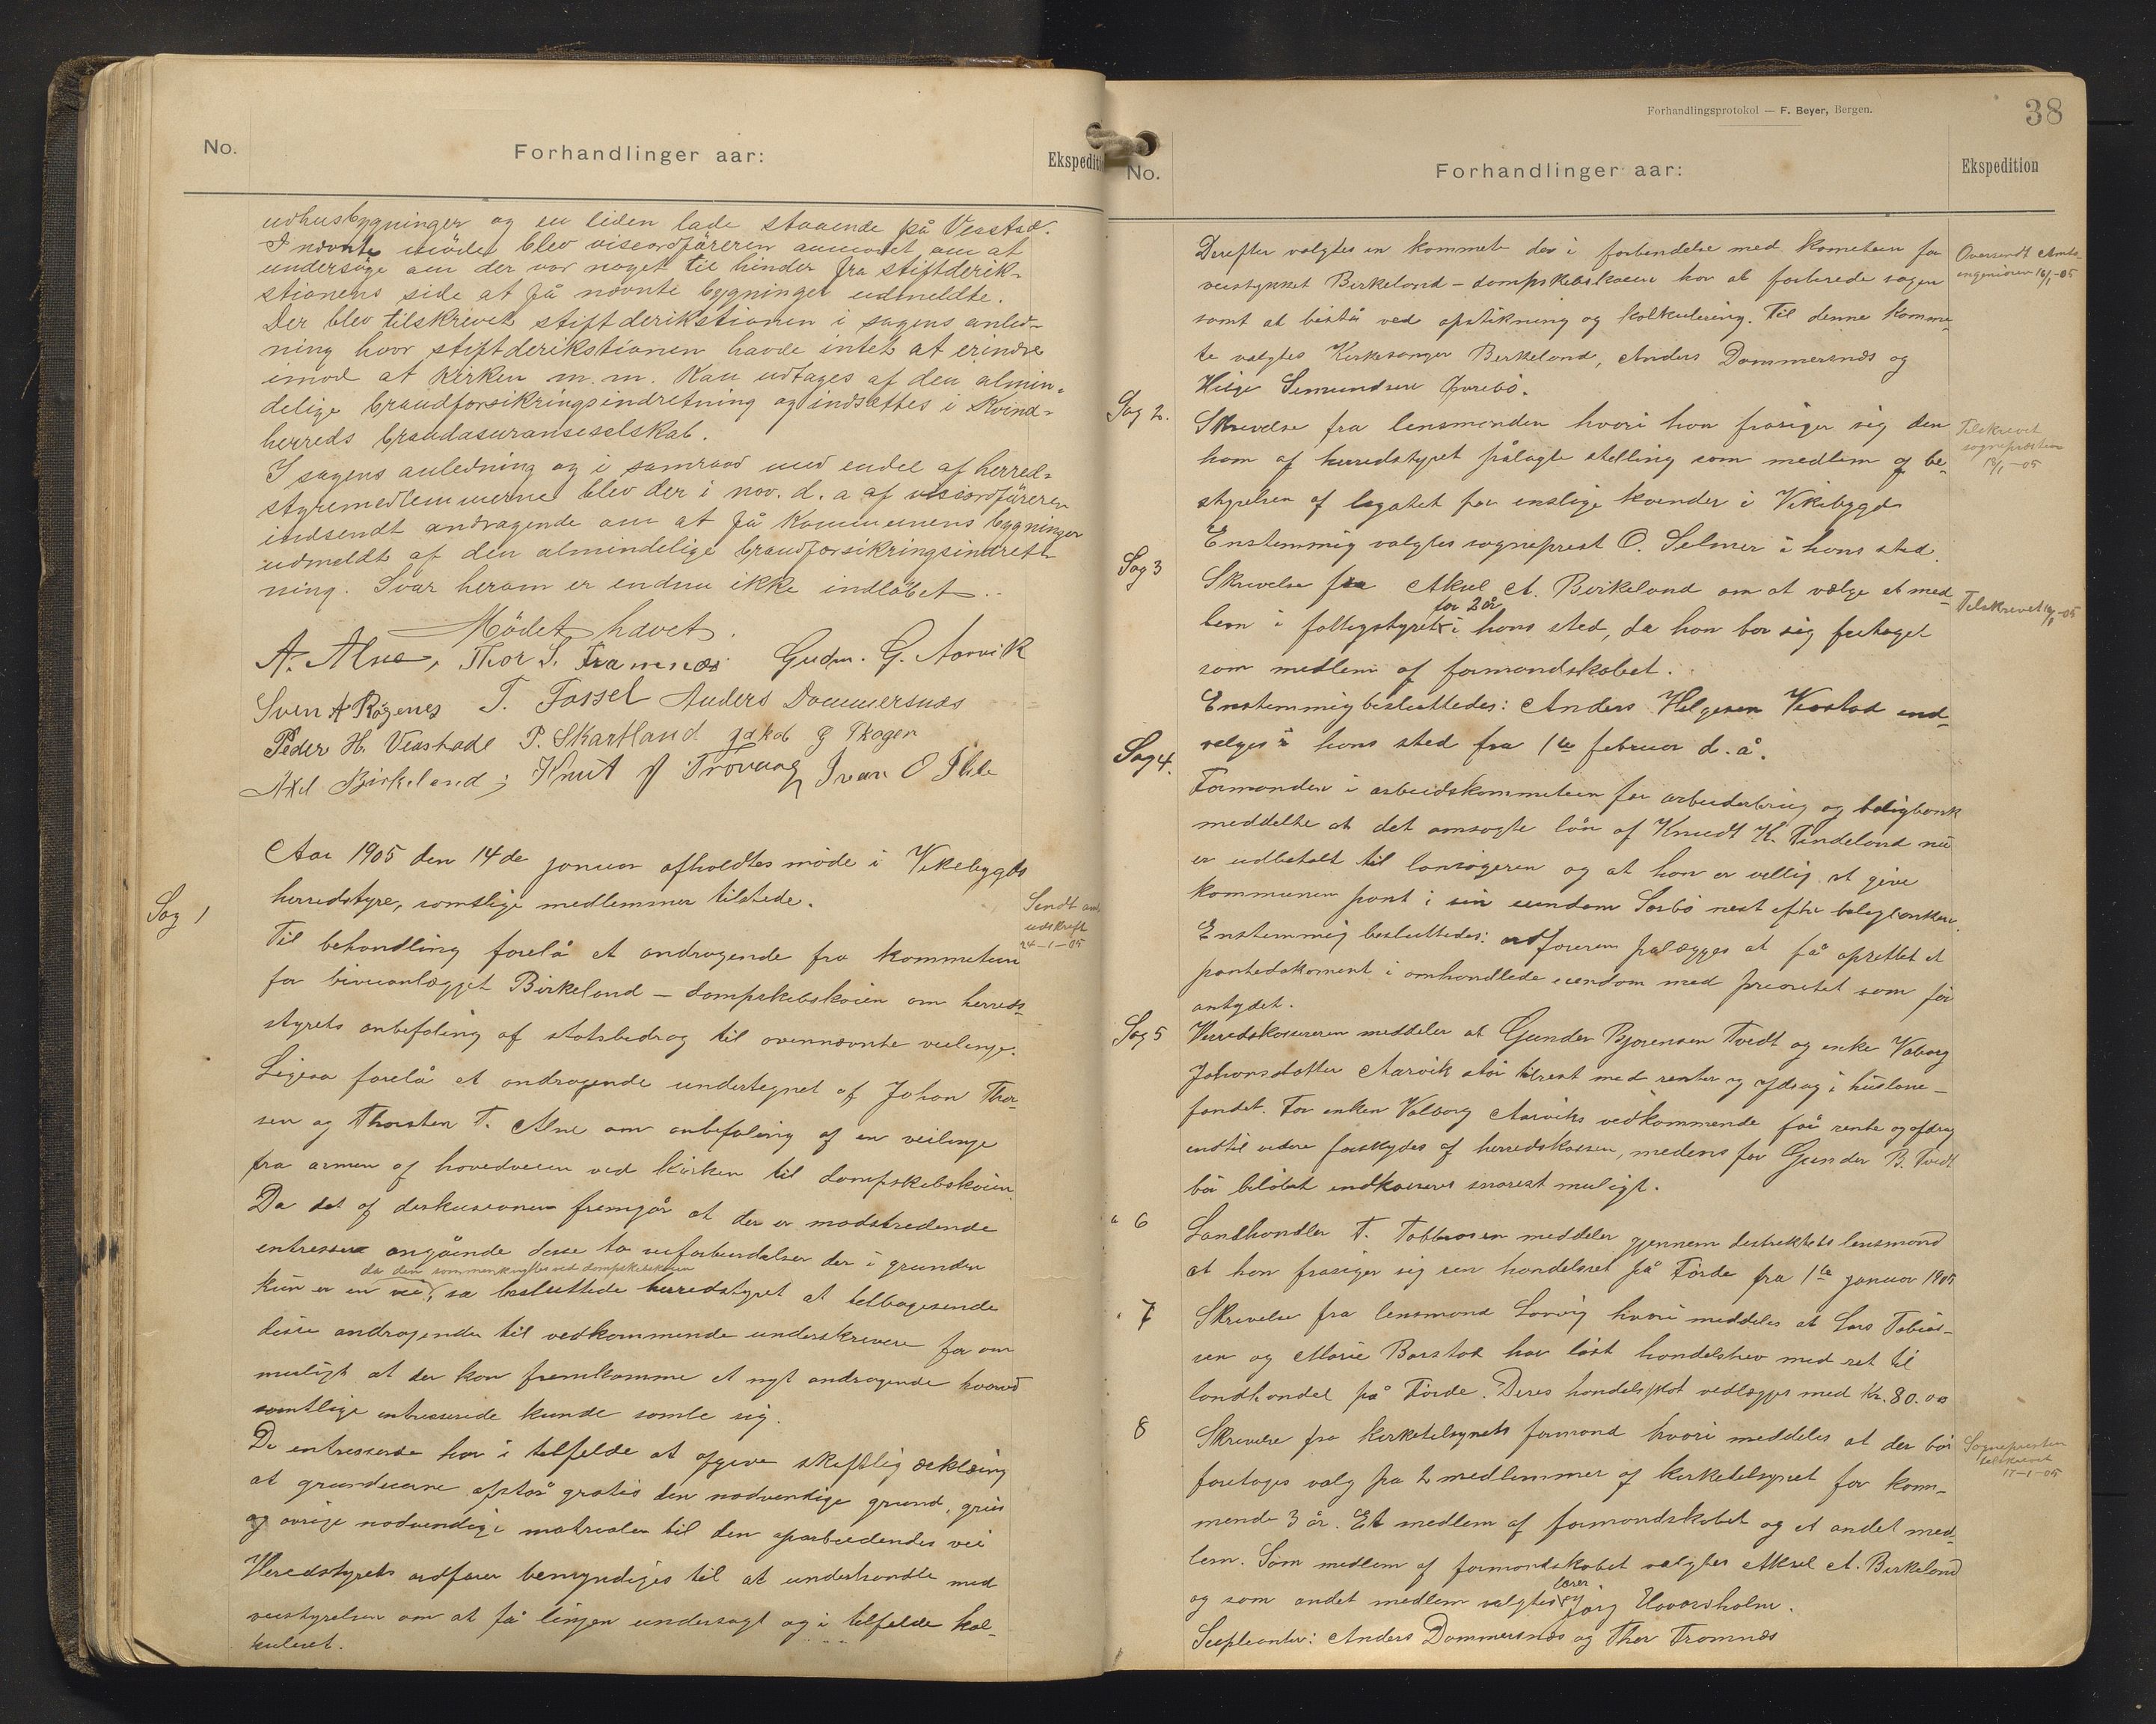 No.
Forhandlinger aar:
Ekspediti
udhusbygninger og en liden lade staaende på Vesstad.
I nævnte møde blev viseordføreren anmodet om at
undersøge om der var noget til hinder fra stiftderik-
stionens side at få nævnte bygninger udmeldte.
Der blev tilskrevet stiftderikstionen i sagens anled-
ning hvor stiftderikstionen havde intet at erindre
imod at kirken m.m. kan udtages af den almin-
delige brandforsikringsendretning og indsættes i Kvind-
herreds brandasuranseselskab.
I sagens anledning og i samraad med endel af herred-
styremedlemmerne blev der i nov. d. a. af viseordføreren
indsendt andragende om at få kommunens bygninger
udmeldt af den almindelige brandforsikringsindrett-
ning. Svar herom er endnu ikke indløbet.
Mödet hævet.
A. Alne, Thor S. Framnæs Gudm. G. Aarvik
Sven A Røgenes T. Fossel Anders Dommersnæs
Peder H. Vesstade P. Skartland Jakob G Skogen
Axel Birkeland; Knut J Trovaag Ivar O Øhle
Aar 1905 den 14de januar afholdtes møde i Vikebygds
herredstyre, samtlige medlemmer tilstede.
Sag 1
Sendt
udskrift
24-1-05
Til behandling forelå et andragende fra kommeteen
for veieanlægget Birkeland – dampskibskaien om herreds-
styrets anbefaling af statsbedrag til ovennævnte veilenge.
Ligesaa forelå et andragende undertegnet af Johan Thor-
sen og Thorsten T. Alne om anbefaling af en veilenge
fra armen af hovedveien ved kirken til dampskibskaien.
Da det af deskusionen fremgår at der er modstredende
entresser angående disse to veiforbindelser der i grunden
da den sammenknyttes ved dampskibskaien
kun er en vei, sa besluttede herredstyret at tilbagesende
disse andragender til vedkommende underskrivere for om
muligt at der kan fremkomme et nyt andragende hvorved
samtlige entresserede kunde samle sig.
De entresserede har i tilfelde at afgive skriftlig erklæring
at grundeierne afstår gratis den nødvendige grund, grus
og øvrige nødvendige matrealer til den oparbeidendes vei
Herredstyrets ordfører bemyndiges til at underhandle med
veistyrelsen om at få linjen undersøgt og i tilfelde kal-
kuleret.
Forhandlingsprotokol — F. Beyer, Bergen.
38
No.
Forhandlinger aar:
Ekspedition
Derefter valgtes en kommete der i forbindelse med kometeen for
veistykket Birkeland – dampskibskaien har at forberede sagen
samt at bistå ved opstikning og kalkulering. Til denne komme-
te valgtes Kirkesanger Birkeland, Anders Dommersnæs og
Helge Simundsen Øvrebø.
Oversendt Amts-
ingeniøren 16/1-05
Sag 2.
Skrivelse fra lensmanden hvori han frasiger sig den
ham af herredstyret pålagte stelling som medlem af be-
styrelsen af legatet for enslige kvinder i Vikebygd
Enstemmig valgtes sogneprest O. Selmer i hans sted.
Tilskrevet
sognepræsten
16/1-05
Sag 3
Skrivelse fra Aksel A. Birkeland om at vælge et med-
for 2 år
lem i fattigstyret i hans sted, da han bør sig fritaget
som medlem af formandskabet.
Enstemmig besluttedes: Anders Helgesen Vesstad ind-
velges i hans sted fra 1te februar d. å.
Tilskrevet 16/1-05
Sag 4.
Formanden i arbeidskommeteen for arbeiderbrug og boligbank
meddelte at det ansøgte lån af Knudt K. Tindeland nu
er udbetalt til lånsøgeren og at han er villig at give
kommunen pant i sin eiendom Sørbø nest efter boligbanken.
Enstemmig besluttedes: ordføreren pålægges at få oprettet et
pantedokoment i omhandlede eiendom med prioritet som før
antydet.
Sag 5
Herredskasereren meddeler at Gunder Bjørensen Tvedt og enke Valborg
Johansdatter Aarvik står tilrest med renter og afdrag i huslåne-
fondet. For enken Valborg Aarviks vedkommende får rente og afdrag
indtil videre forskydes af herredskassen, medens for Gunder B. Tvedt
bør beløbet indkasseres snarest muligt.
" 6
Landhandler T. Tobbiassen meddeler gjennem destrektets lensmand
at han frasiger sig sen handelsret på Førde fra 1te januar 1905
" 7
Skrivelse fra lensmand Larvig hvori meddeles at Lars Tobias-
sen og Marie Barstad har løst handelsbrev med ret til
landhandel på Førde. Deres handelsskat vedlægges med Kr. 80.00
8
Skrivelse fra kirketilsynets formand hvori meddeles at der bør
foretages valg på 2 medlemmer af kirketilsynet for kom-
mende 3 år. Et medlem af formandskabet og et andet med-
lem. Som medlem af formandskabet valgtes Aksel A. Birkeland
lærer
og som andet medlem valgtes Jørg Haavarsholm.
Supleanter: Anders Dommersnæs og Thor Framnæs
Sognepresten
tilskrevet
17-1-05